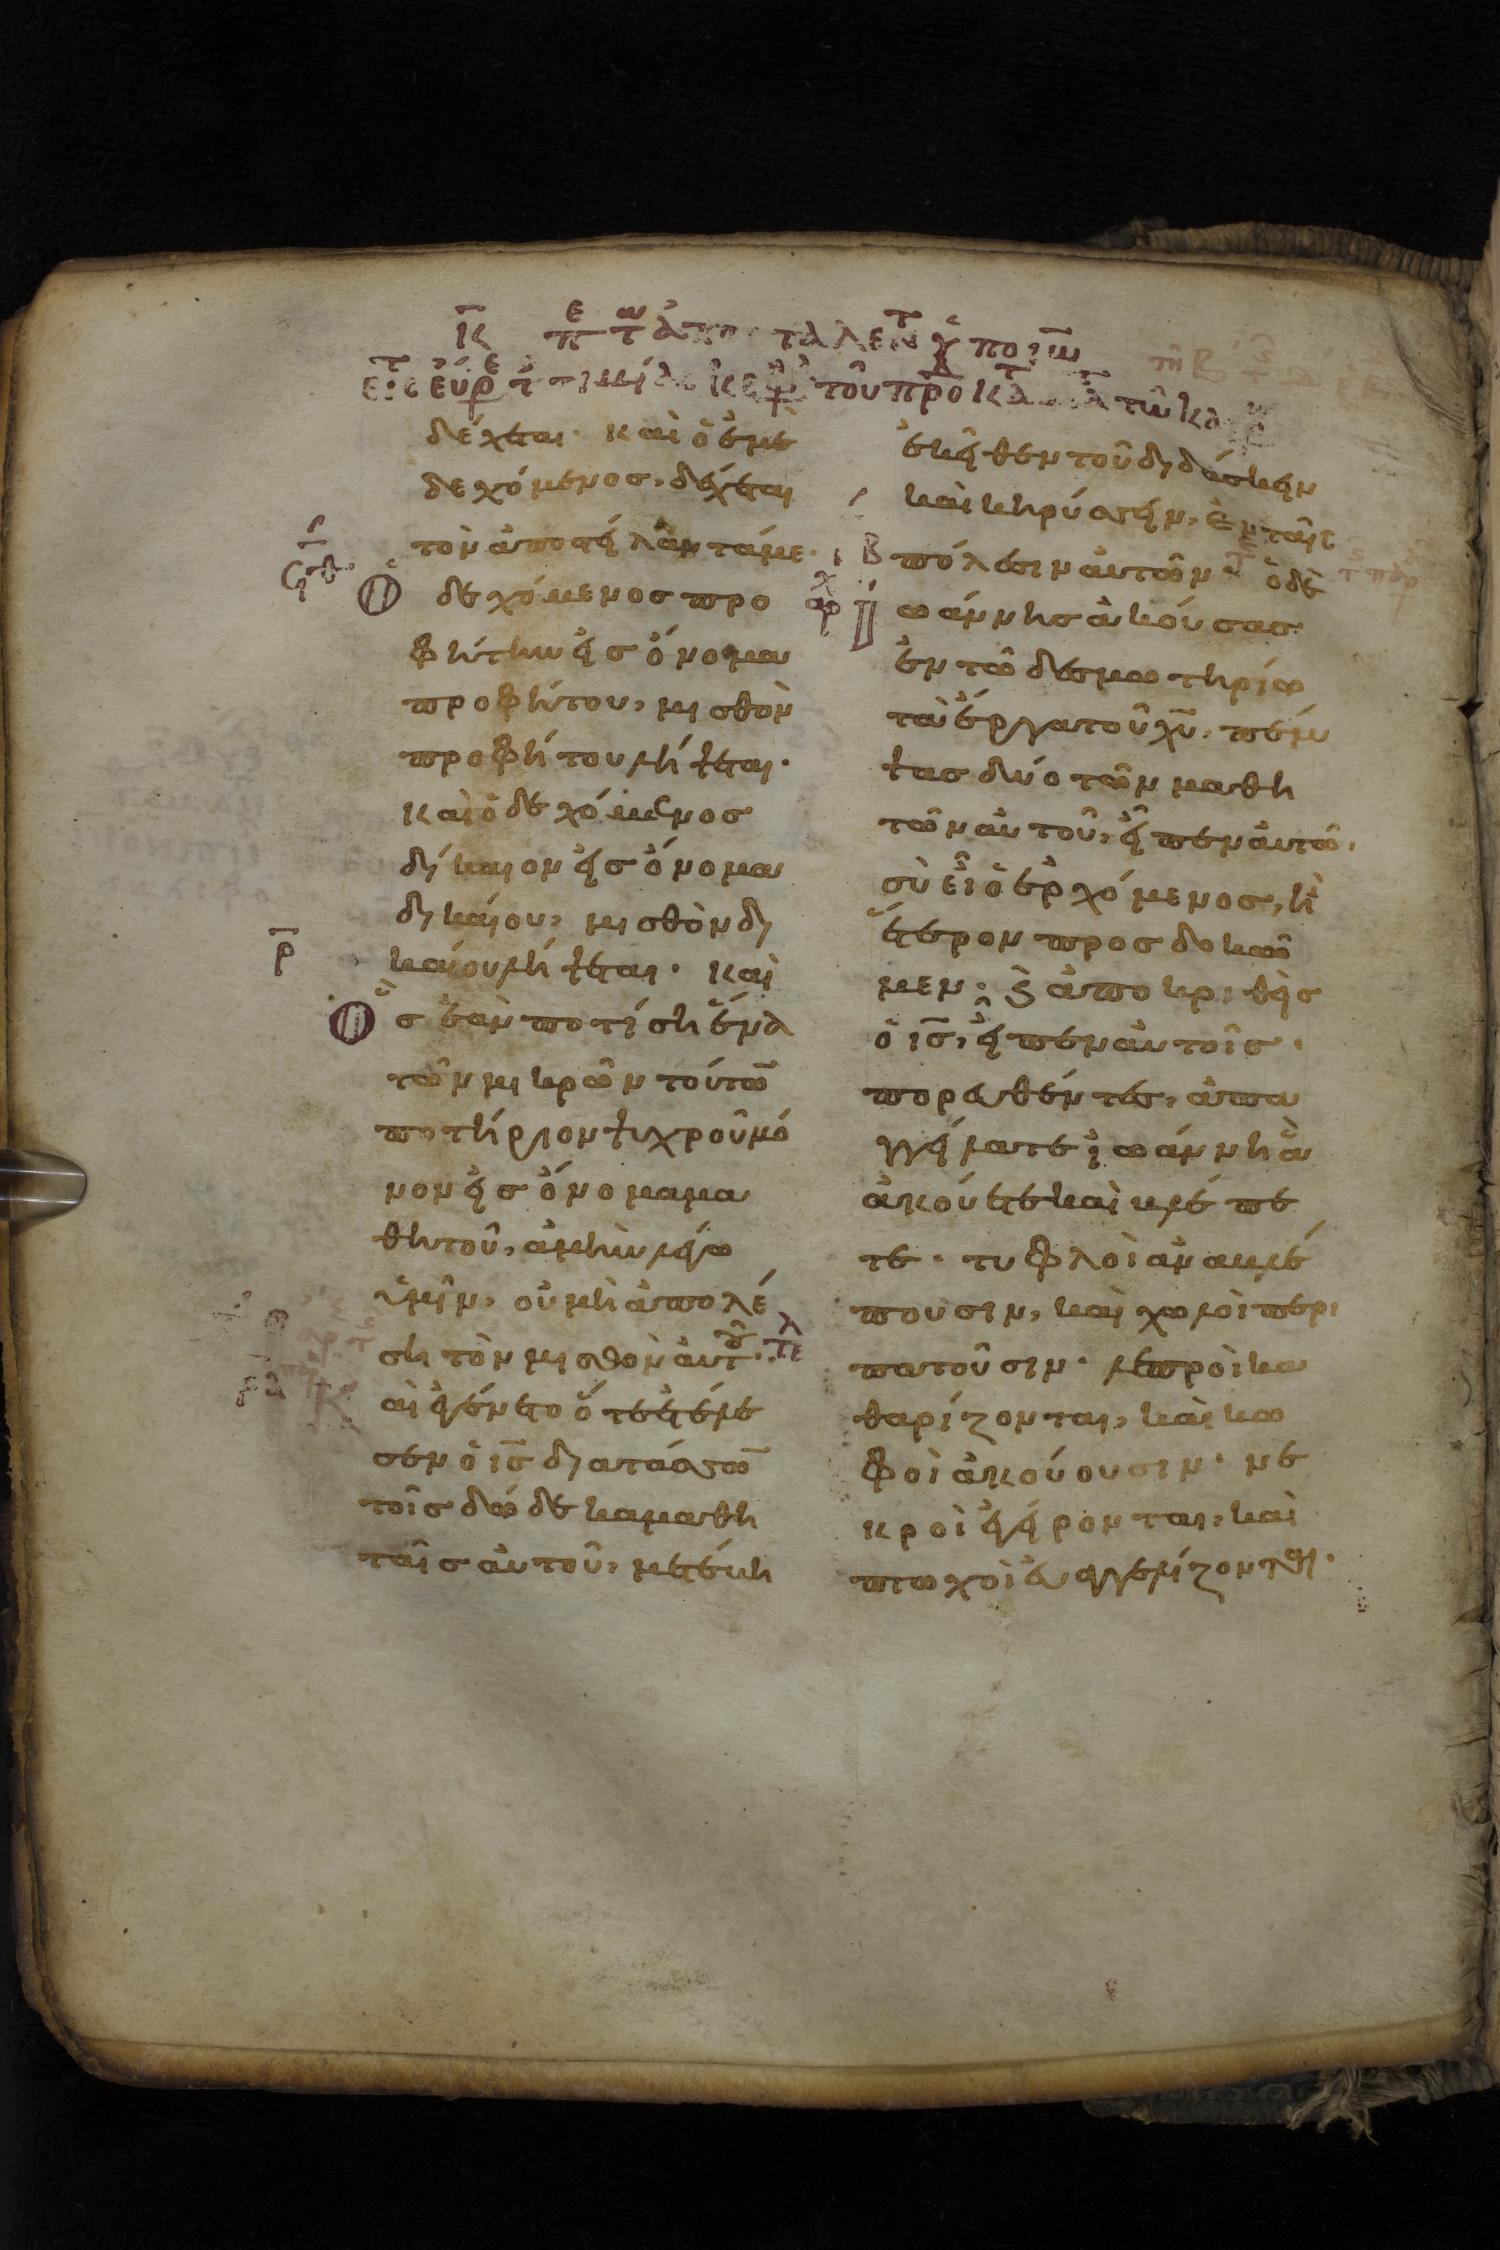 δέχεται· καὶ ὁ ἐμὲ
δεχόμενος, δέχεται
τὸν ἀποστείλαντά με·
Ὁ δεχόμενος προ
φήτην εἰς ὄνομα
προφήτου, μισθὸν
προφήτου λήψεται·
καὶ ὁ δεχόμενος
δίκαιον εἰς ὄνομα
δικαίου, μισθὸν δι
καίου λήψεται· καὶ
ρ
ὃς ἐὰν ποτίση ἕνα
τῶν μικρῶν τούτω̅
ποτήριον ψυχροῦ μό
νον εἰς ὄνομα μα
θητοῦ, ἀμὴν λέγω
ὑμῖν, οὐ μὴ ἀπολέ
ση τὸν μισθὸν αὐτοῦ·
Καὶ ἐγένετο ὅτε ἐτέλε
σεν ὁ ις̅ διατάσσω̅
τοῖς δώδεκα μαθη
ταῖς αὐτοῦ, μετέβη
ἐκεῖθεν τοῦ διδάσκειν
καὶ κηρύσσειν, ἐν ταῖς
πόλεσιν αὐτῶν· ὁ δὲ
Ἰωάννης ἀκούσας
ἐν τῶ δεσμωτηρίω
τὰ ἔργα τοῦ χυ̅, πέμ
ψας δύο τῶν μαθη
τῶν αὐτοῦ, εἶπεν αὐτῶ·
σὺ εἶ ὁ ἐρχόμενος, ἢ
ἕτερον προσδοκῶ
μεν· ϗ ἀποκριθεὶς
ὁ ις̅, εἶπεν αὐτοῖς·
πορευθέντες, ἀπα
γγείλατε ἰωάννη ἃ
ἀκούετε καὶ βλέπε
τε· τυφλοὶ ἀναβλέ
πουσιν, καὶ χωλοὶ περι
πατοῦσιν· λεπροὶ κα
θαρίζονται, καὶ κω
φοὶ ἀκούουσιν· νε
κροὶ ἐγείρονται, καὶ
πτωχοὶ εὐαγγελίζονται·